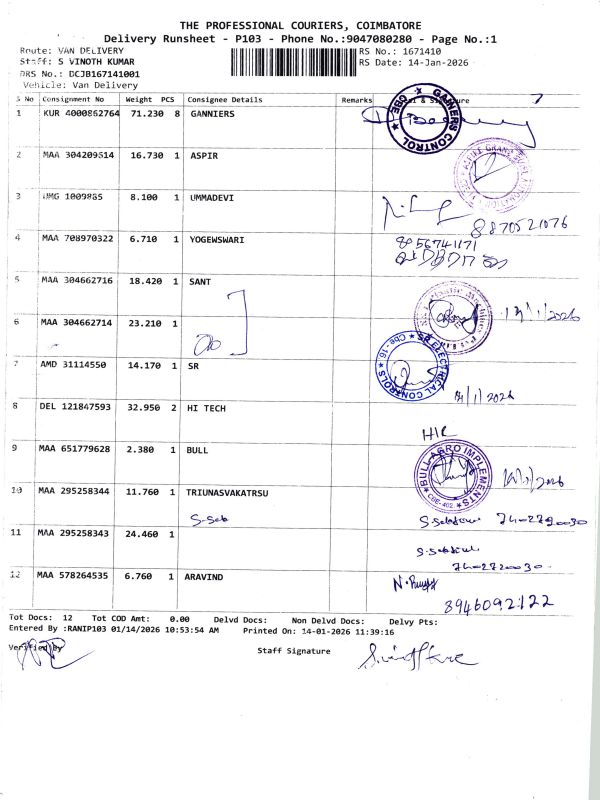 THE PROFESSIONAL COURIERS, COIMBATORE
Delivery Runsheet - P103 - Phone No.:9047080280 - Page No.:1
Route: VAN DELIVERY
RS No.: 1671410
Staff: S VINOTH KUMAR
RS Date: 14-Jan-2026
DRS No.: DCJB167141001
Vehicle: Van Delivery
S No Consignment No Weight PCS Consignee Details Remarks & Signature
1 KUR 4000862764 71.230 8 GANNIERS
GANNERS CONTROL CBE
2 MAA 304209614 16.730 1 ASPIR
3 UMG 1009835 8.100 1 UMMADEVI
8870521076
4 MAA 708970322 6.710 1 YOGEWSWARI
8056741171
5 MAA 304662716 18.420 1 SANT
6 MAA 304662714 23.210 1
7 AMD 31114550 14.170 1 SR
SR ELECTRICAL CONTROLS Cbe-16
8 DEL 121847593 32.950 2 HI TECH
9 MAA 651779628 2.380 1 BULL
BULL AGRO IMPLEMENTS CBE-402
10 MAA 295258344 11.760 1 TRIUNASVAKATRSU
11 MAA 295258343 24.460 1
12 MAA 578264535 6.760 1 ARAVIND
8946092122
Tot Docs: 12 Tot COD Amt: 0.00 Delvd Docs: Non Delvd Docs: Delvy Pts:
Entered By :RANIP103 01/14/2026 10:53:54 AM Printed On: 14-01-2026 11:39:16
Verified By
Staff Signature